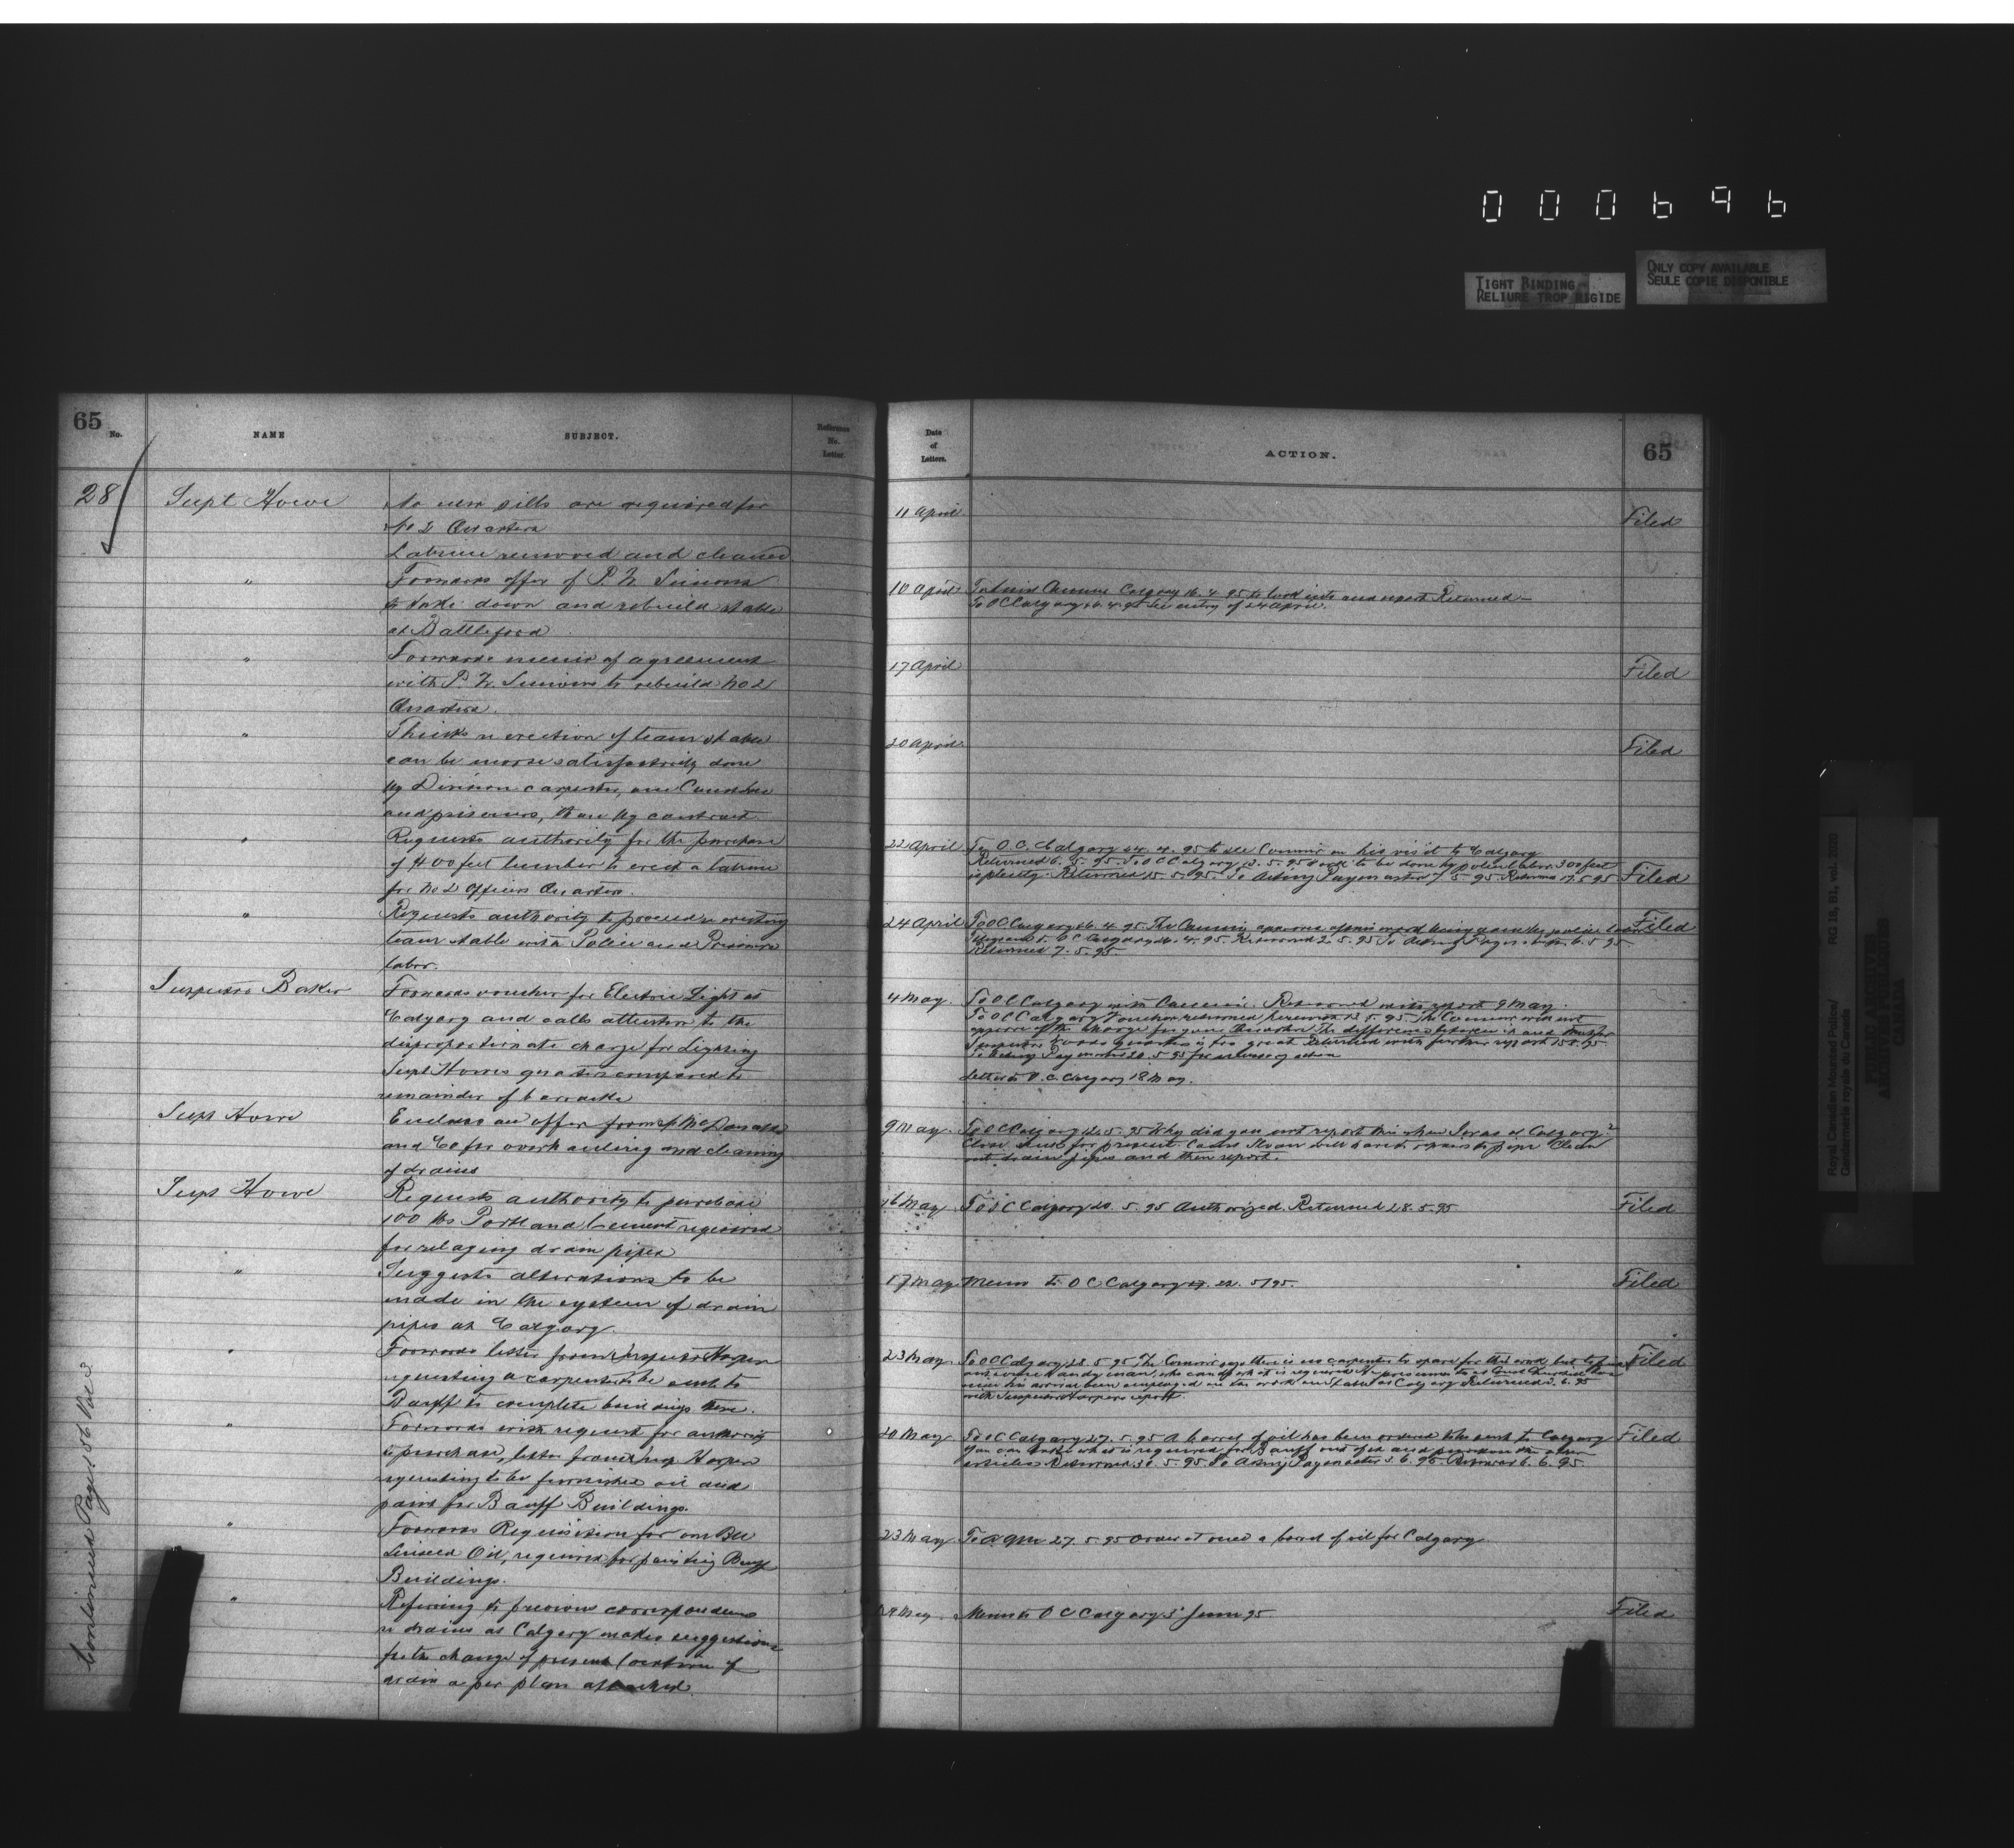 000696
TIGHT BINDING
RELIURE TROP RIGIDE
ONLY COPY AVAILABLE
SEULE COPIE DISPONIBLE
65
No.
NAME
SUBJECT.
Reference
No.
Letter.
28
Supt Howe
No new sills are required for
No 2 Quarters
Latrine removed and cleaned
"
Forwards offer of P. W.
to take down and rebuild stable
at Battleford
"
Forwards memo of agreement
with P. W. to rebuild No 2
Quarters.
"
Thinks re erection of team stable
can be more satisfactorily done
by Division carpenter, one Constable
and prisoners, than by contract.
"
Requests authority for the purchase
of 400 feet lumber to erect a latrine
for No 2 Officers Quarters.
"
Requests authority to proceed re erecting
team stable with Police and Prisoners
labor.
Inspector Baker
Forwards voucher for Electric Light at
Calgary and calls attention to the
disproportionate charge for Lighting
Supt Howes qrs as compared to
remainder of barracks
Supt Howe
Encloses an offer from McDonald
and Co for overhauling and cleaning
of drains
Supt Howe
Requests authority to purchase
100 lbs Portland Cement required
for relaying drain pipes
"
Suggests alterations to be
made in the system of drain
pipes at Calgary.
"
Forwards letter from Inspector Harper
requesting a carpenter to be sent to
Banff to complete buildings there.
"
Forwards with request for authority
to purchase, letter from Insp Harper
requesting to be furnished oil and
paint for Banff Buildings.
"
Forwards Requisition for one Bbl
Linseed Oil, required for painting Banff
Buildings.
"
Referring to previous correspondence
re drains at Calgary makes suggestions
for the change of present location of
drain as per plan attached.
Continued Page 56 Vol 3
Date
of
Letters.
ACTION.
65
11 April
Filed
10 April
Calgary 16.4.95 to look into and report Returned
To OC Calgary 26.4.95 See entry of 24 April.
17 April
Filed
20 April
Filed
22 April
To O.C. Calgary 24.4.95 to see Commr on his visit to Calgary
Returned 6.5.95. To OC Calgary 13.5.95 Work to be done by police labor. 300 feet
is plenty. Returned 15.5.95. To Acting Paymaster 17.5.95 Returned 17.5.95
Filed
24 April
To OC Calgary 26.4.95 The Commr approves of work being done by police labor
OC Calgary 26.4.95. Returned 2.5.95 To Acting Paymaster 6.5.95
Returned 7.5.95.
Filed
4 May
To OC Calgary with Returned with report 9 May.
To OC Calgary Voucher returned 13.5.95 The Commr will not
approve of the charge for your Quarters The difference between it and that for
Inspector Woods Quarters is too great Returned with further report 15.5.95
To Acting Paymaster 20.5.95
Letter to O.C. Calgary 18 May.
9 May
To OC Calgary 12.5.95 Why did you not report this when I was at Calgary?
for present. Const will repair to pipe Clean
out drain pipes and then report.
16 May
To OC Calgary 20.5.95 Authorized. Returned 28.5.95
Filed
17 May
Memo to OC Calgary 22.5/95.
Filed
23 May
To OC Calgary 28.5.95 The Commr says there is no carpenter to spare for this work but to
handy man, who can do what is required
been employed on the work on Stable at Calgary Returned 3.6.95
with Inspector Harpers report
Filed
20 May
To OC Calgary 27.5.95 A barrel of oil has been ordered to be sent to Calgary
You can take what is required for Banff out of it and purchase the other
articles Returned 30.5.95 To Acting Paymaster 5.6.95 Returned 6.6.95
Filed
23 May
To 27.5.95 Order at once a barrel of oil for Calgary
29 May
Memo to OC Calgary 3 June 95
Filed
Royal Canadian Mounted Police/
Gendarmerie royale du Canada
RG 18, B1, vol. 2020
PUBLIC ARCHIVES
ARCHIVES PUBLIQUES
CANADA